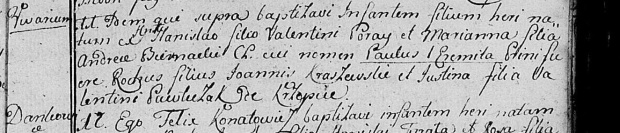 Vivarium
11. Idem qui supra baptisavi Infantem filium heri na-
tum ex Stanislao filio Valentini Poray et Marianna filia
Andreæ Biernacki Ch. cui nomen Paulus I Eremita Ptrini fu
ere Rochus filius Joannis Kraszewski et Justina filia Va
lentini Pawleczak de Krzepice.
12. Ego Felix Konatowicz baptisavi infantem heri natam
filia